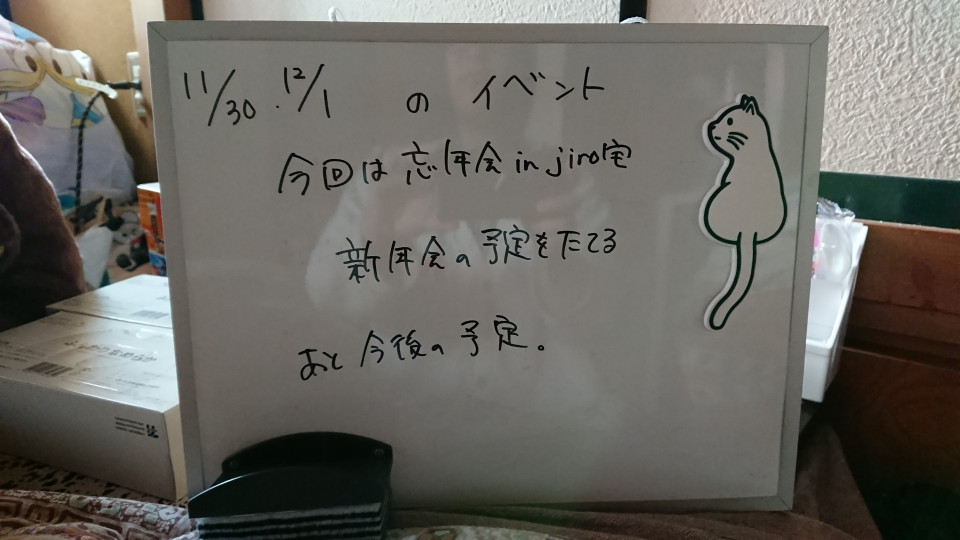 11/30.12/1 の イベント
今回は忘年会 in jiro宅
新年会の予定をたてる
あと今後の予定。